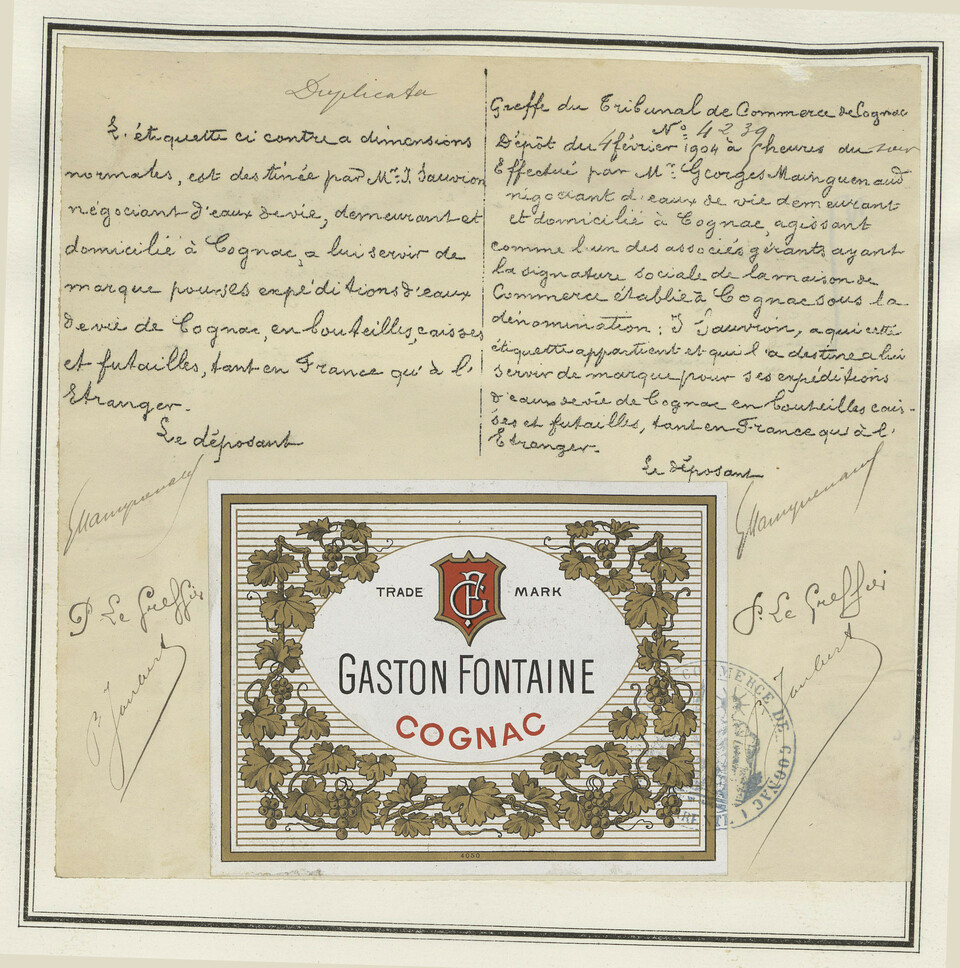 Duplicata
L'étiquette ci contre a dimensions
normales, est destinée par Mr. J. Sauvion
négociant d'eaux de vie, demeurant et
domicilié à Cognac, a lui servir de
marque pour ses expéditions d'eaux
de vie de Cognac, en bouteilles, caisses
et futailles, tant en France qu'à l'
Etranger.
Le déposant
GMainguenaud
P. Le Greffier
Greffe du Tribunal de Commerce de Cognac
No. 4239
Dépôt du 4 février 1904 à heures du soir
Effectué par Mr. Georges Mainguenaud
négociant d'eaux de vie demeurant
et domicilié à Cognac, agissant
comme l'un des associés gérants ayant
la signature sociale de la maison de
Commerce établie à Cognac sous la
dénomination: J Sauvion, a qui cette
étiquette appartient et qui l'a destine a lui
servir de marque pour ses expéditions
d'eaux de vie de Cognac en bouteilles cais-
ses et futailles, tant en France qu'à l'
Etranger.
Le déposant
GMainguenaud
P. Le Greffier
TRADE MARK
GASTON FONTAINE
COGNAC
COMMERCE DE COGNAC